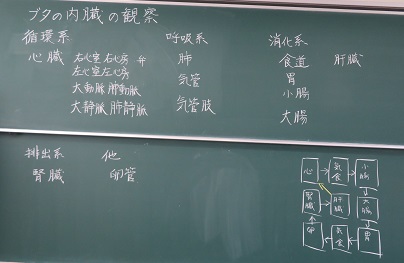 ブタの内臓の観察
循環系 呼吸系 消化系
心臓 右心室 右心房 弁 肺 食道 肝臓
左心室 左心房 胃
大動脈 肺動脈 気管 小腸
大静脈 肺静脈 気管肢 大腸
排出系 他
腎臓 卵管
心 → 気食 → 小腸
腎臓 → 肝臓 大腸
卵 気食 胃